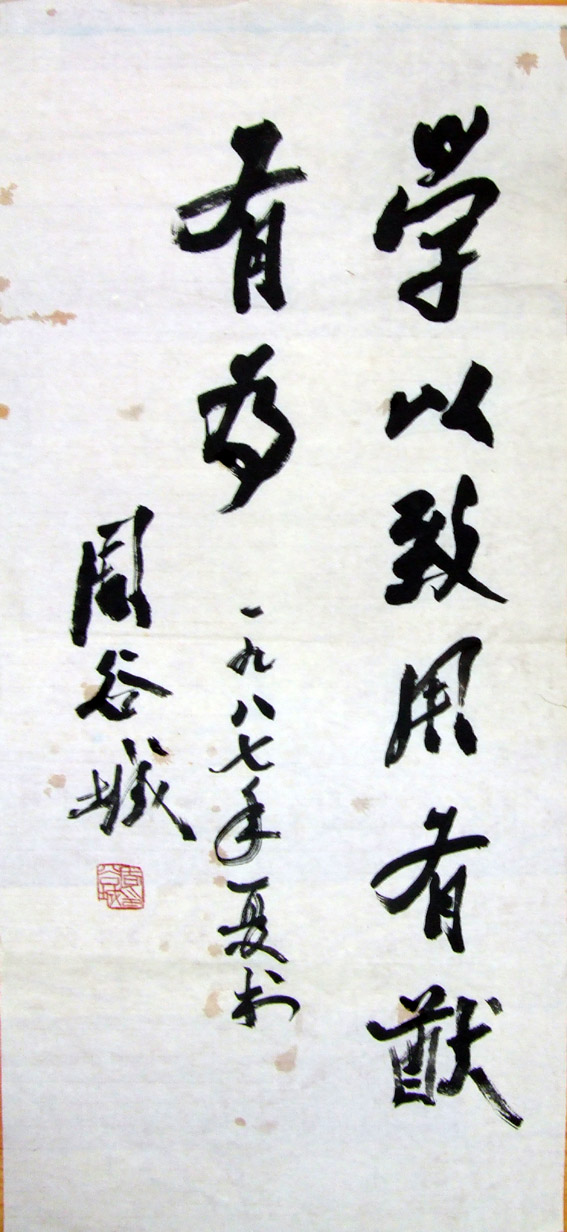 学以致用有猷
有为
一九八七年夏于
周谷城